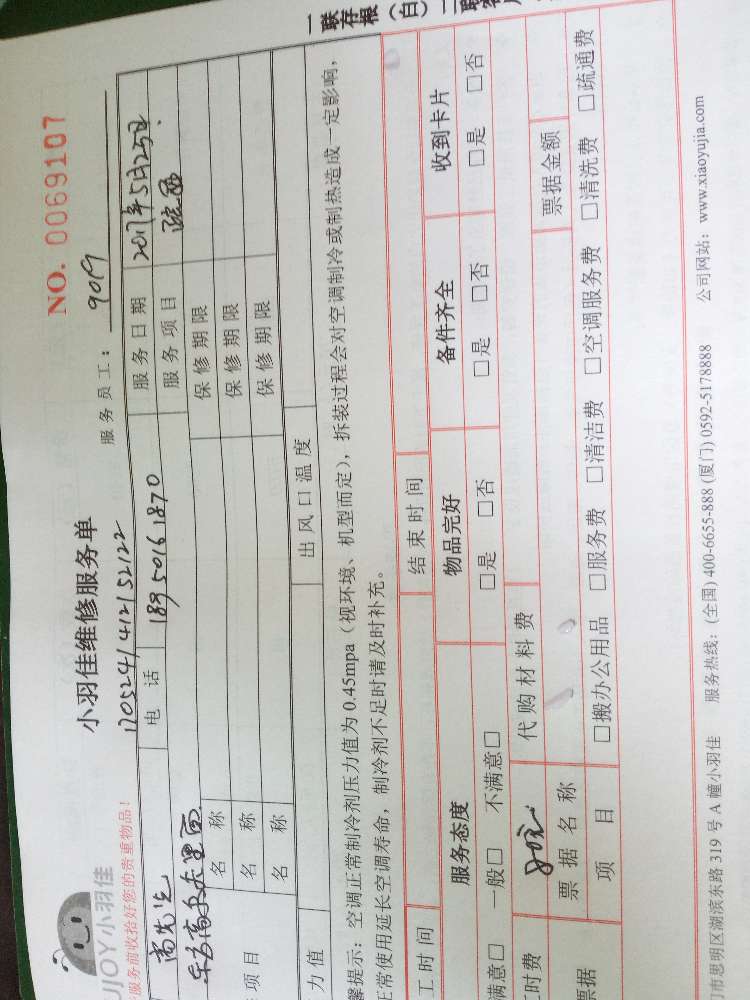 一联存根（白）二联客户
NO. 0069107
UJOY小羽佳
小羽佳维修服务单
服务前收拾好您的贵重物品！
1705241412152122
服务员工： 9019
电话 18950161870 服务日期 2017年5月25日
服务项目
名称 保修期限
名称 保修期限
名称 保修期限
项目
力值 出风口温度
馨提示：空调正常制冷剂压力值为 0.45mpa（视环境、机型而定），拆装过程会对空调制冷或制热造成一定影响，
正常使用延长空调寿命，制冷剂不足时请及时补充。
工时间 结束时间
服务态度 物品完好 备件齐全 收到卡片
满意□ 一般□ 不满意□ □是 □否 □是 □否 □是 □否
时费 代购材料费
票据 票据名称 票据金额
项目 □搬办公用品 □服务费 □清洁费 □空调服务费 □清洗费 □疏通费
门市思明区湖滨东路 319 号 A 幢小羽佳 服务热线：(全国) 400-6655-888 (厦门) 0592-5178888 公司网站：www.xiaoyujia.com